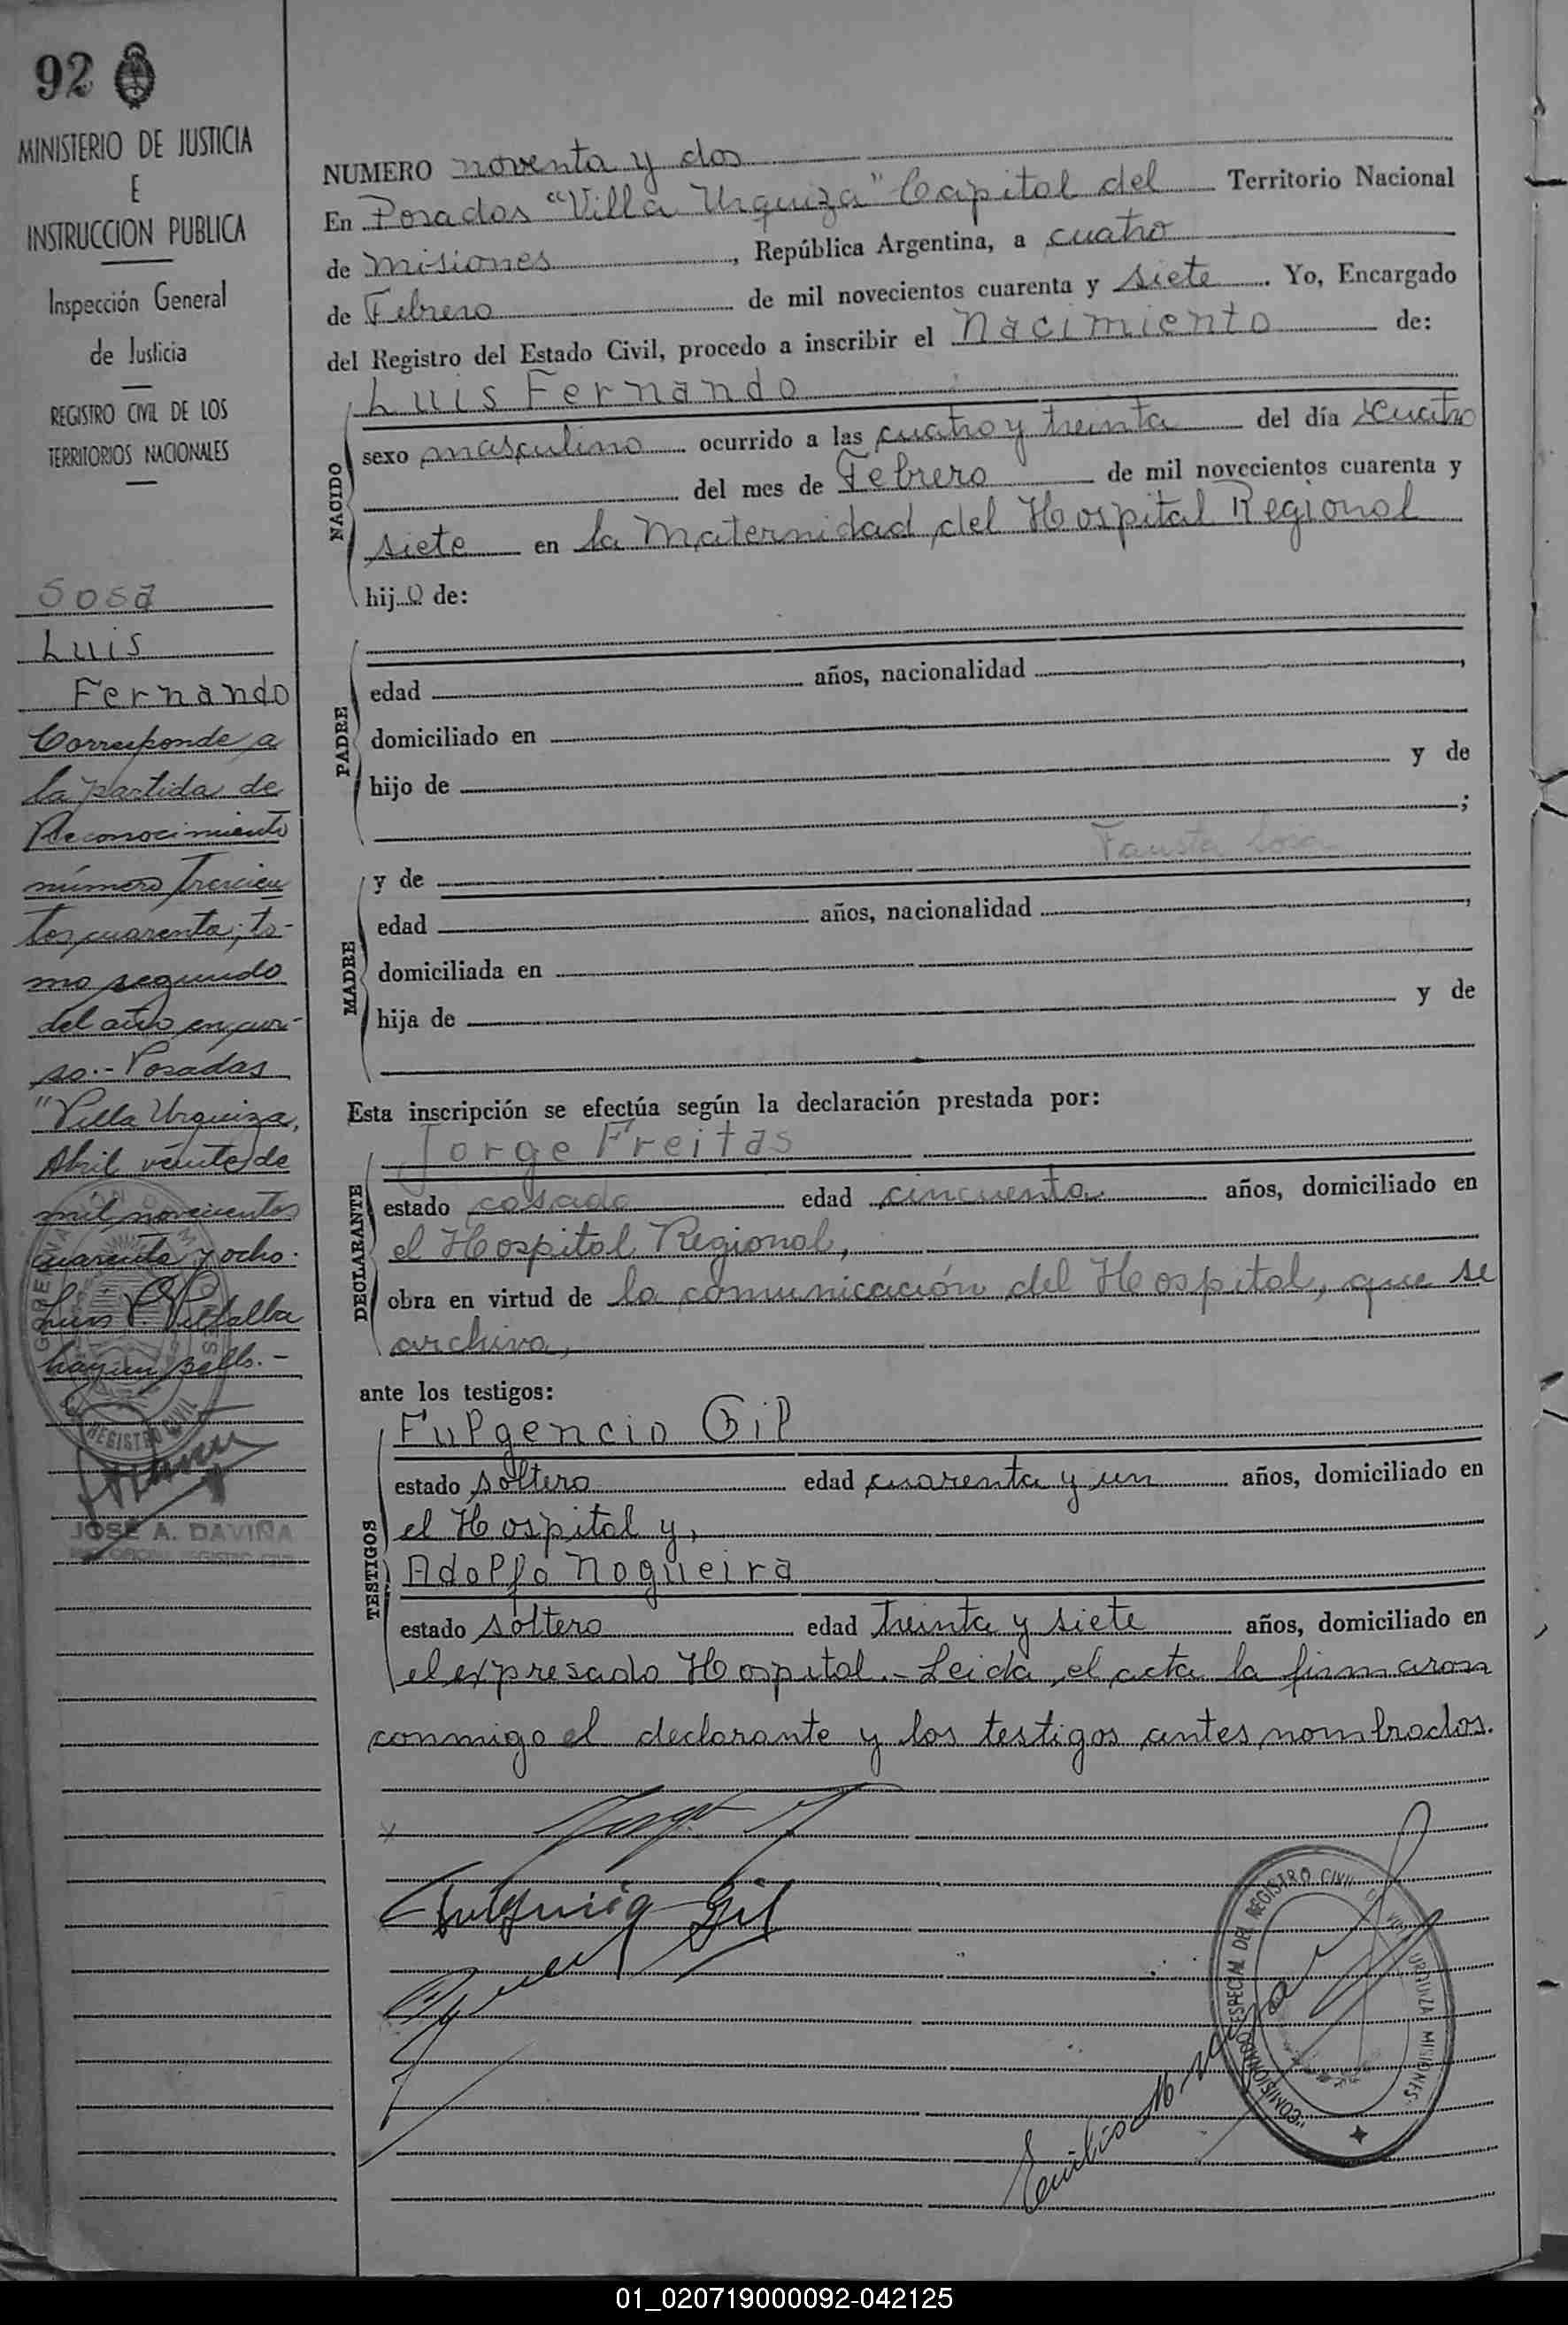 92
MINISTERIO DE JUSTICIA
E
INSTRUCCION PUBLICA
Inspección General
de Justicia
REGISTRO CIVIL DE LOS
TERRITORIOS NACIONALES
Sosa
Luis
Fernando
Corresponde a
la partida de
Reconocimiento
número Trescien
tos cuarenta; to-
mo segundo
del año en cur-
so.- Posadas
"Villa Urquiza,
Abril veinte de
mil novecientos
cuarenta y ocho.
Luis P. Villalba
hay un sello.-
REGISTRO CIVIL
JOSE A. DAVIÑA
NUMERO noventa y dos
En Posadas "Villa Urquiza" Capital del Territorio Nacional
de Misiones, República Argentina, a cuatro
de Febrero de mil novecientos cuarenta y siete. Yo, Encargado
del Registro del Estado Civil, procedo a inscribir el Nacimiento de:
NACIDO
Luis Fernando
sexo masculino ocurrido a las cuatro y treinta del día cuatro
del mes de Febrero de mil novecientos cuarenta y
siete en la Maternidad del Hospital Regional
hijo de:
PADRE
edad años, nacionalidad ,
domiciliado en
hijo de y de
;
Fausta Sosa
MADRE
y de
edad años, nacionalidad ,
domiciliada en
hija de y de
Esta inscripción se efectúa según la declaración prestada por:
DECLARANTE
Jorge Freitas
estado casado edad cincuenta años, domiciliado en
el Hospital Regional,
obra en virtud de la comunicación del Hospital, que se
archiva,
ante los testigos:
TESTIGOS
Fulgencio Gil
estado soltero edad cuarenta y un años, domiciliado en
el Hospital y,
Adolfo Nogueira
estado soltero edad treinta y siete años, domiciliado en
el expresado Hospital.- Leida el acta la firmaron
conmigo el declarante y los testigos antes nombrados.
Fulgencio Gil
COMISIONADO ESPECIAL DEL REGISTRO CIVIL VILLA URQUIZA MISIONES
01_020719000092-042125